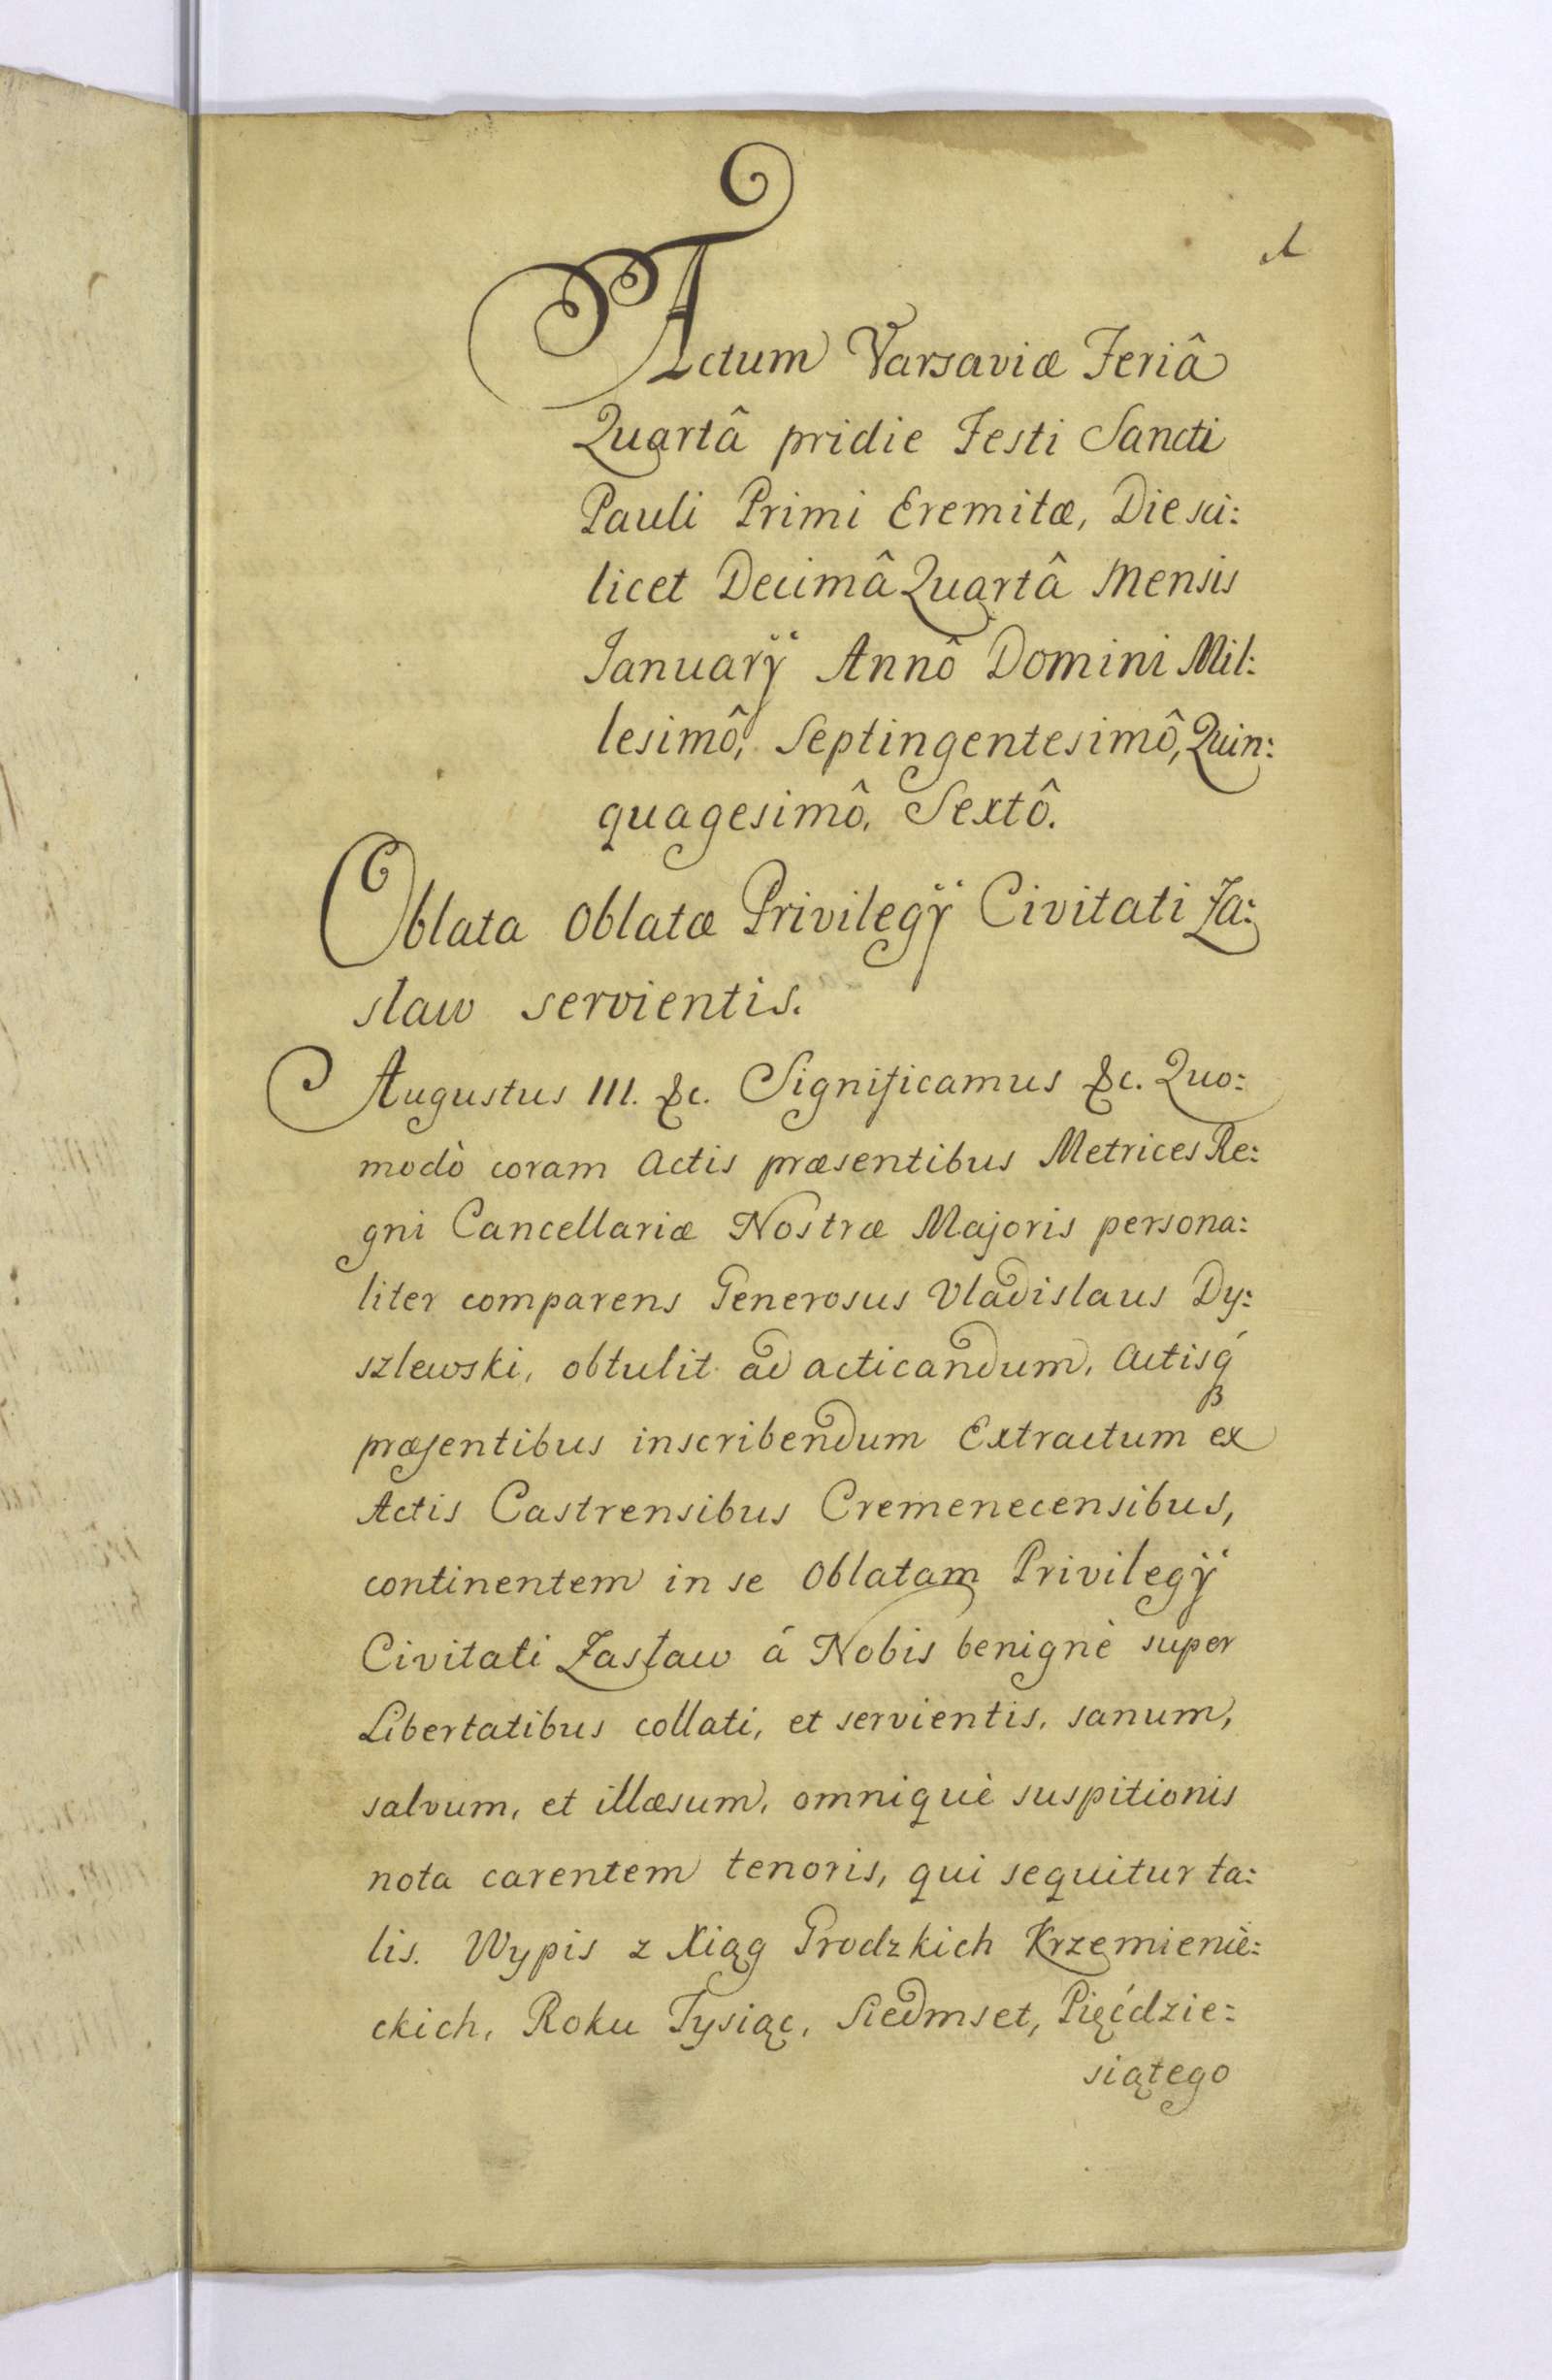 1
Actum Varsaviæ Feriâ
Quartâ pridie Festi Sancti
Pauli Primi Eremitæ, Die sci:
licet Decimâ Quartâ Mensis
Ianuarÿ Annô Domini Mil:
lesimô, Septingentesimô, Quin:
quagesimô, Sextô.
Oblata Oblatæ Privilegÿ Civitati Za:
slaw servientis.
Augustus III. &c. Significamus &c. Quo:
modò coram Actis præsentibus Metrices Re:
gni Cancellariæ Nostræ Majoris persona:
liter comparens Generosus Vladislaus Dy:
szlewski, obtulit ad acticandum, Actisq́
præsentibus inscribendum Extractum ex
Actis Castrensibus Cremenecensibus,
continentem in se Oblatam Privilegÿ
Civitati Zasław á Nobis benignè super
Libertatibus collati, et servientis, sanum,
salvum, et illæsum, omniquè suspitionis
nota carentem tenoris, qui sequitur ta:
lis. Wypis z Xiąg Grodzkich Krzemienie:
ckich, Roku Tysiąc, Siedmset, Pięćdzie:
siątego